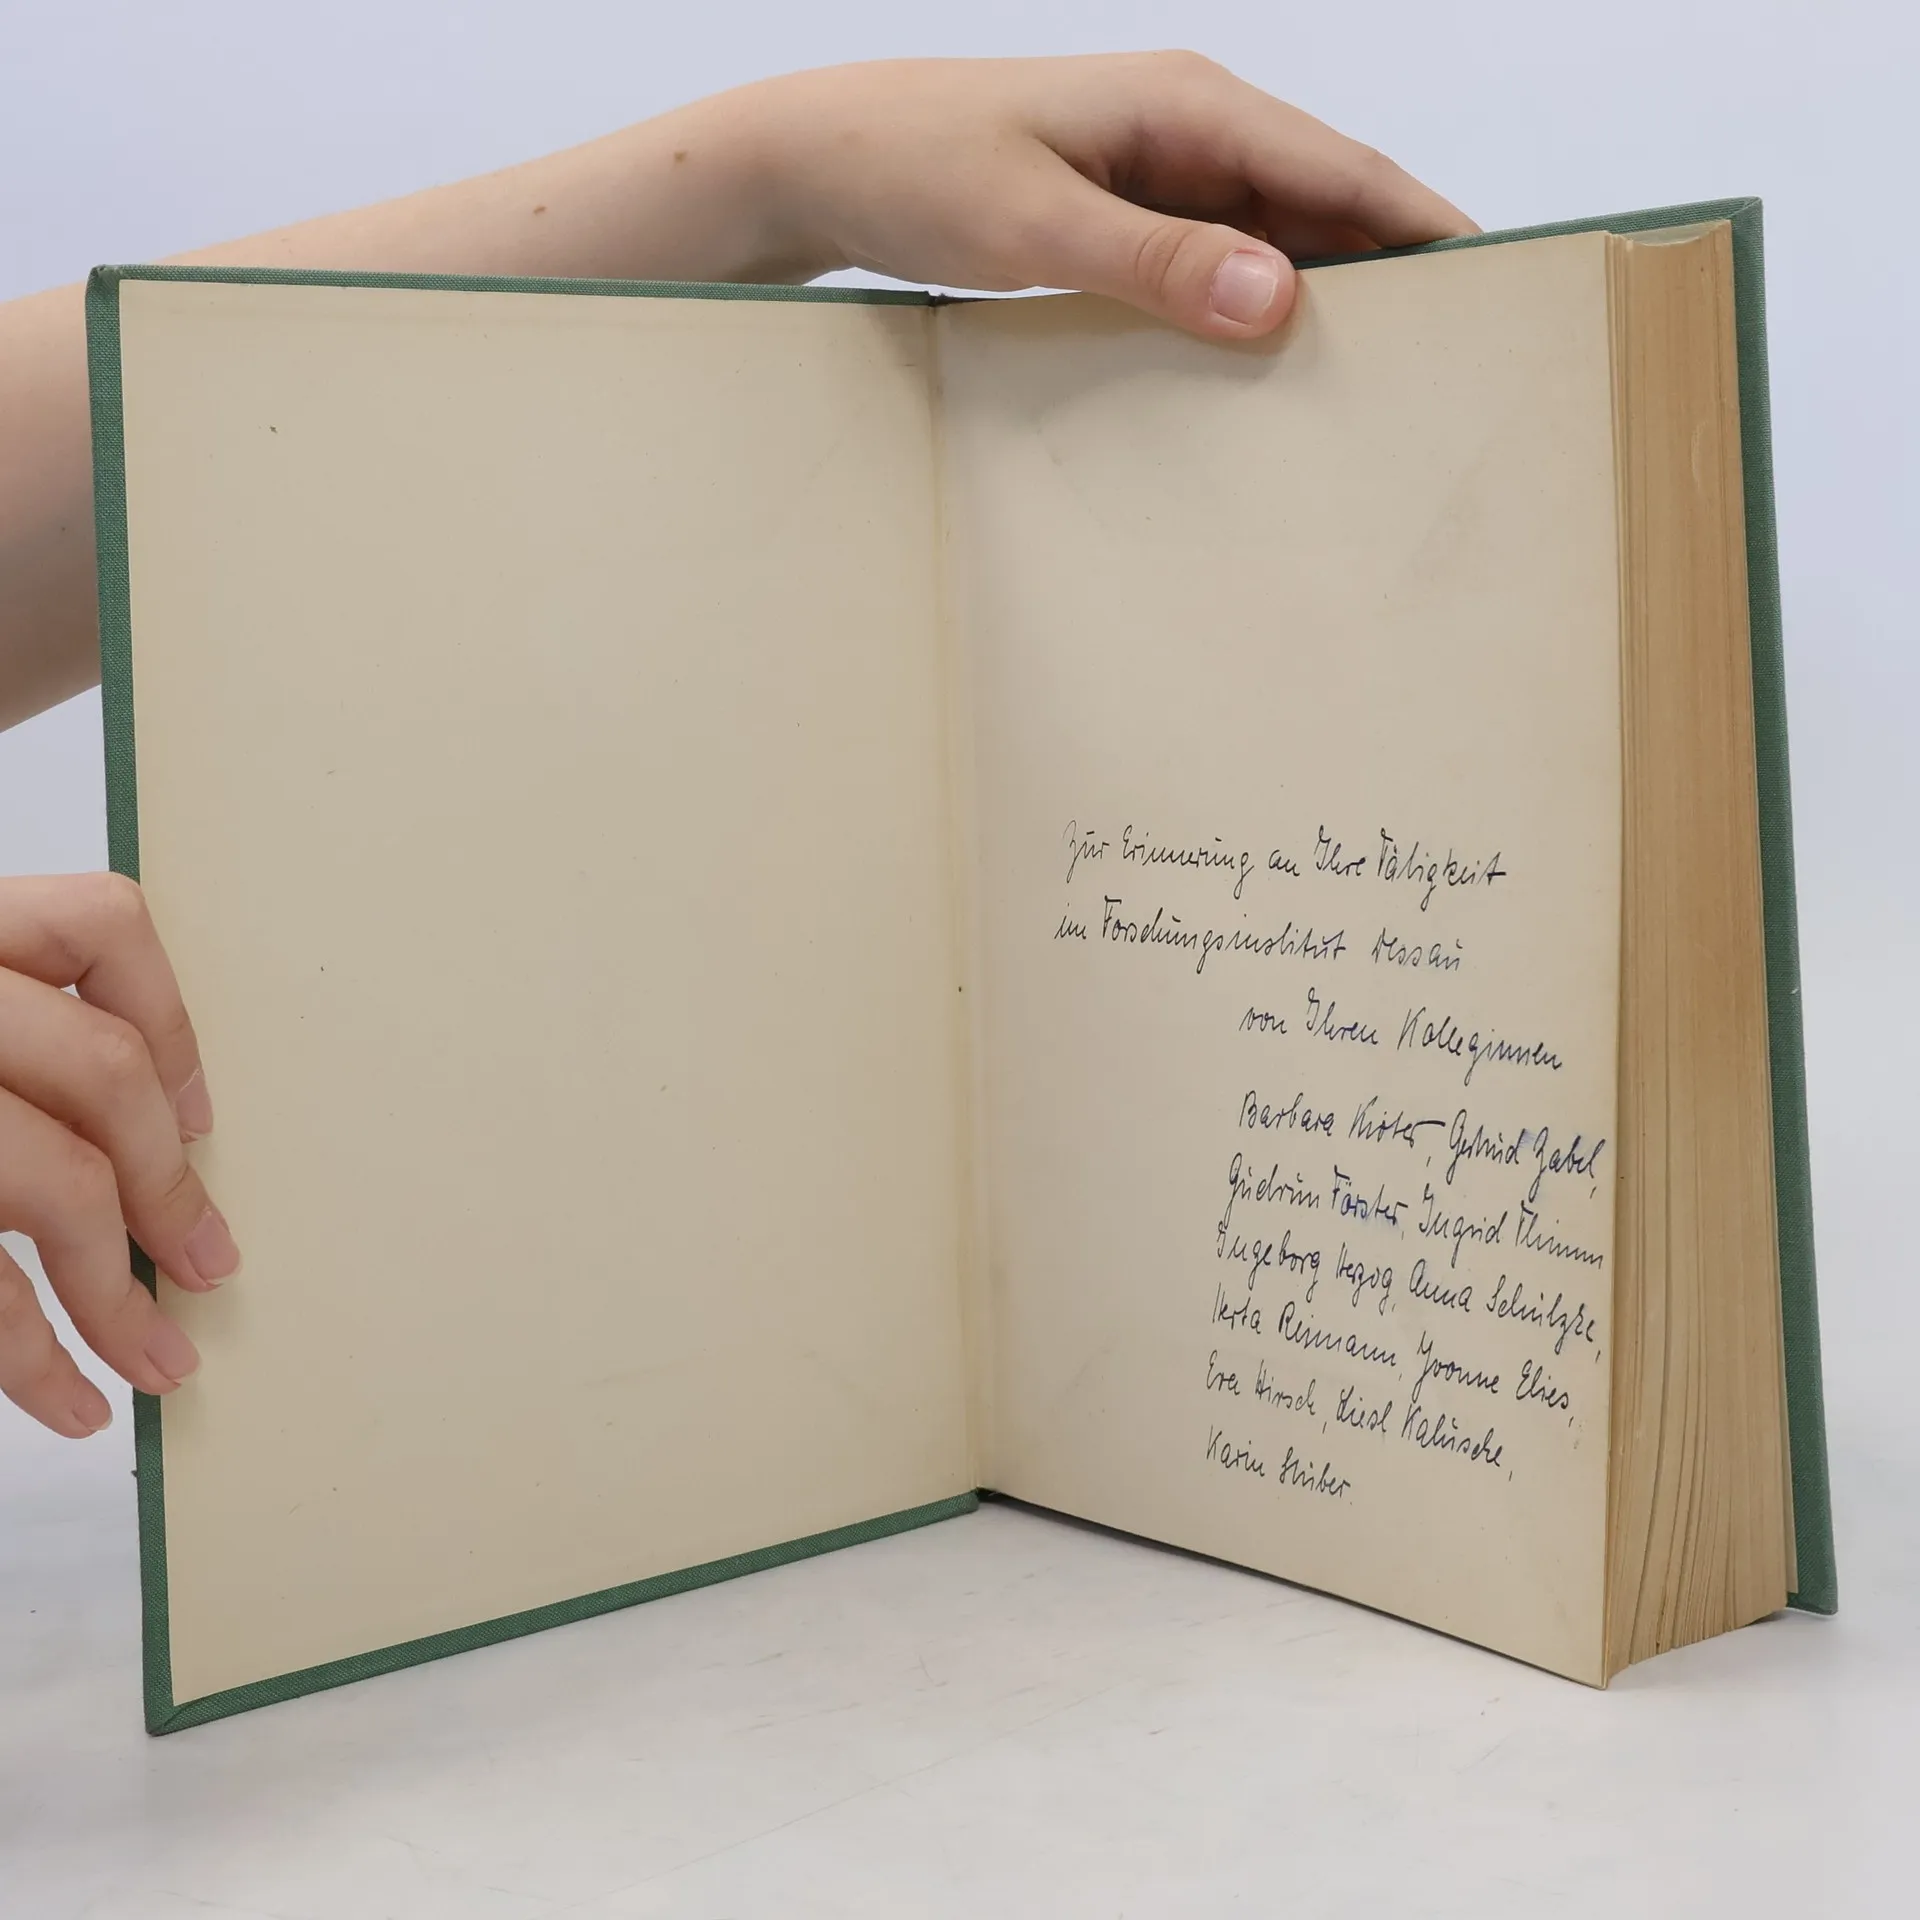 Zur Erinnerung an Ihre Tätigkeit
im Forschungsinstitut Dessau
von Ihren Kolleginnen
Barbara Gertrud Zabel,
Gudrun Förster, Ingrid Thimm
Ingeborg Herzog, Anna Schulzke,
Herta Reimann, Yvonne Elies,
Eva Hirsch, Liesl Kaluscke,
Karin Stuber.